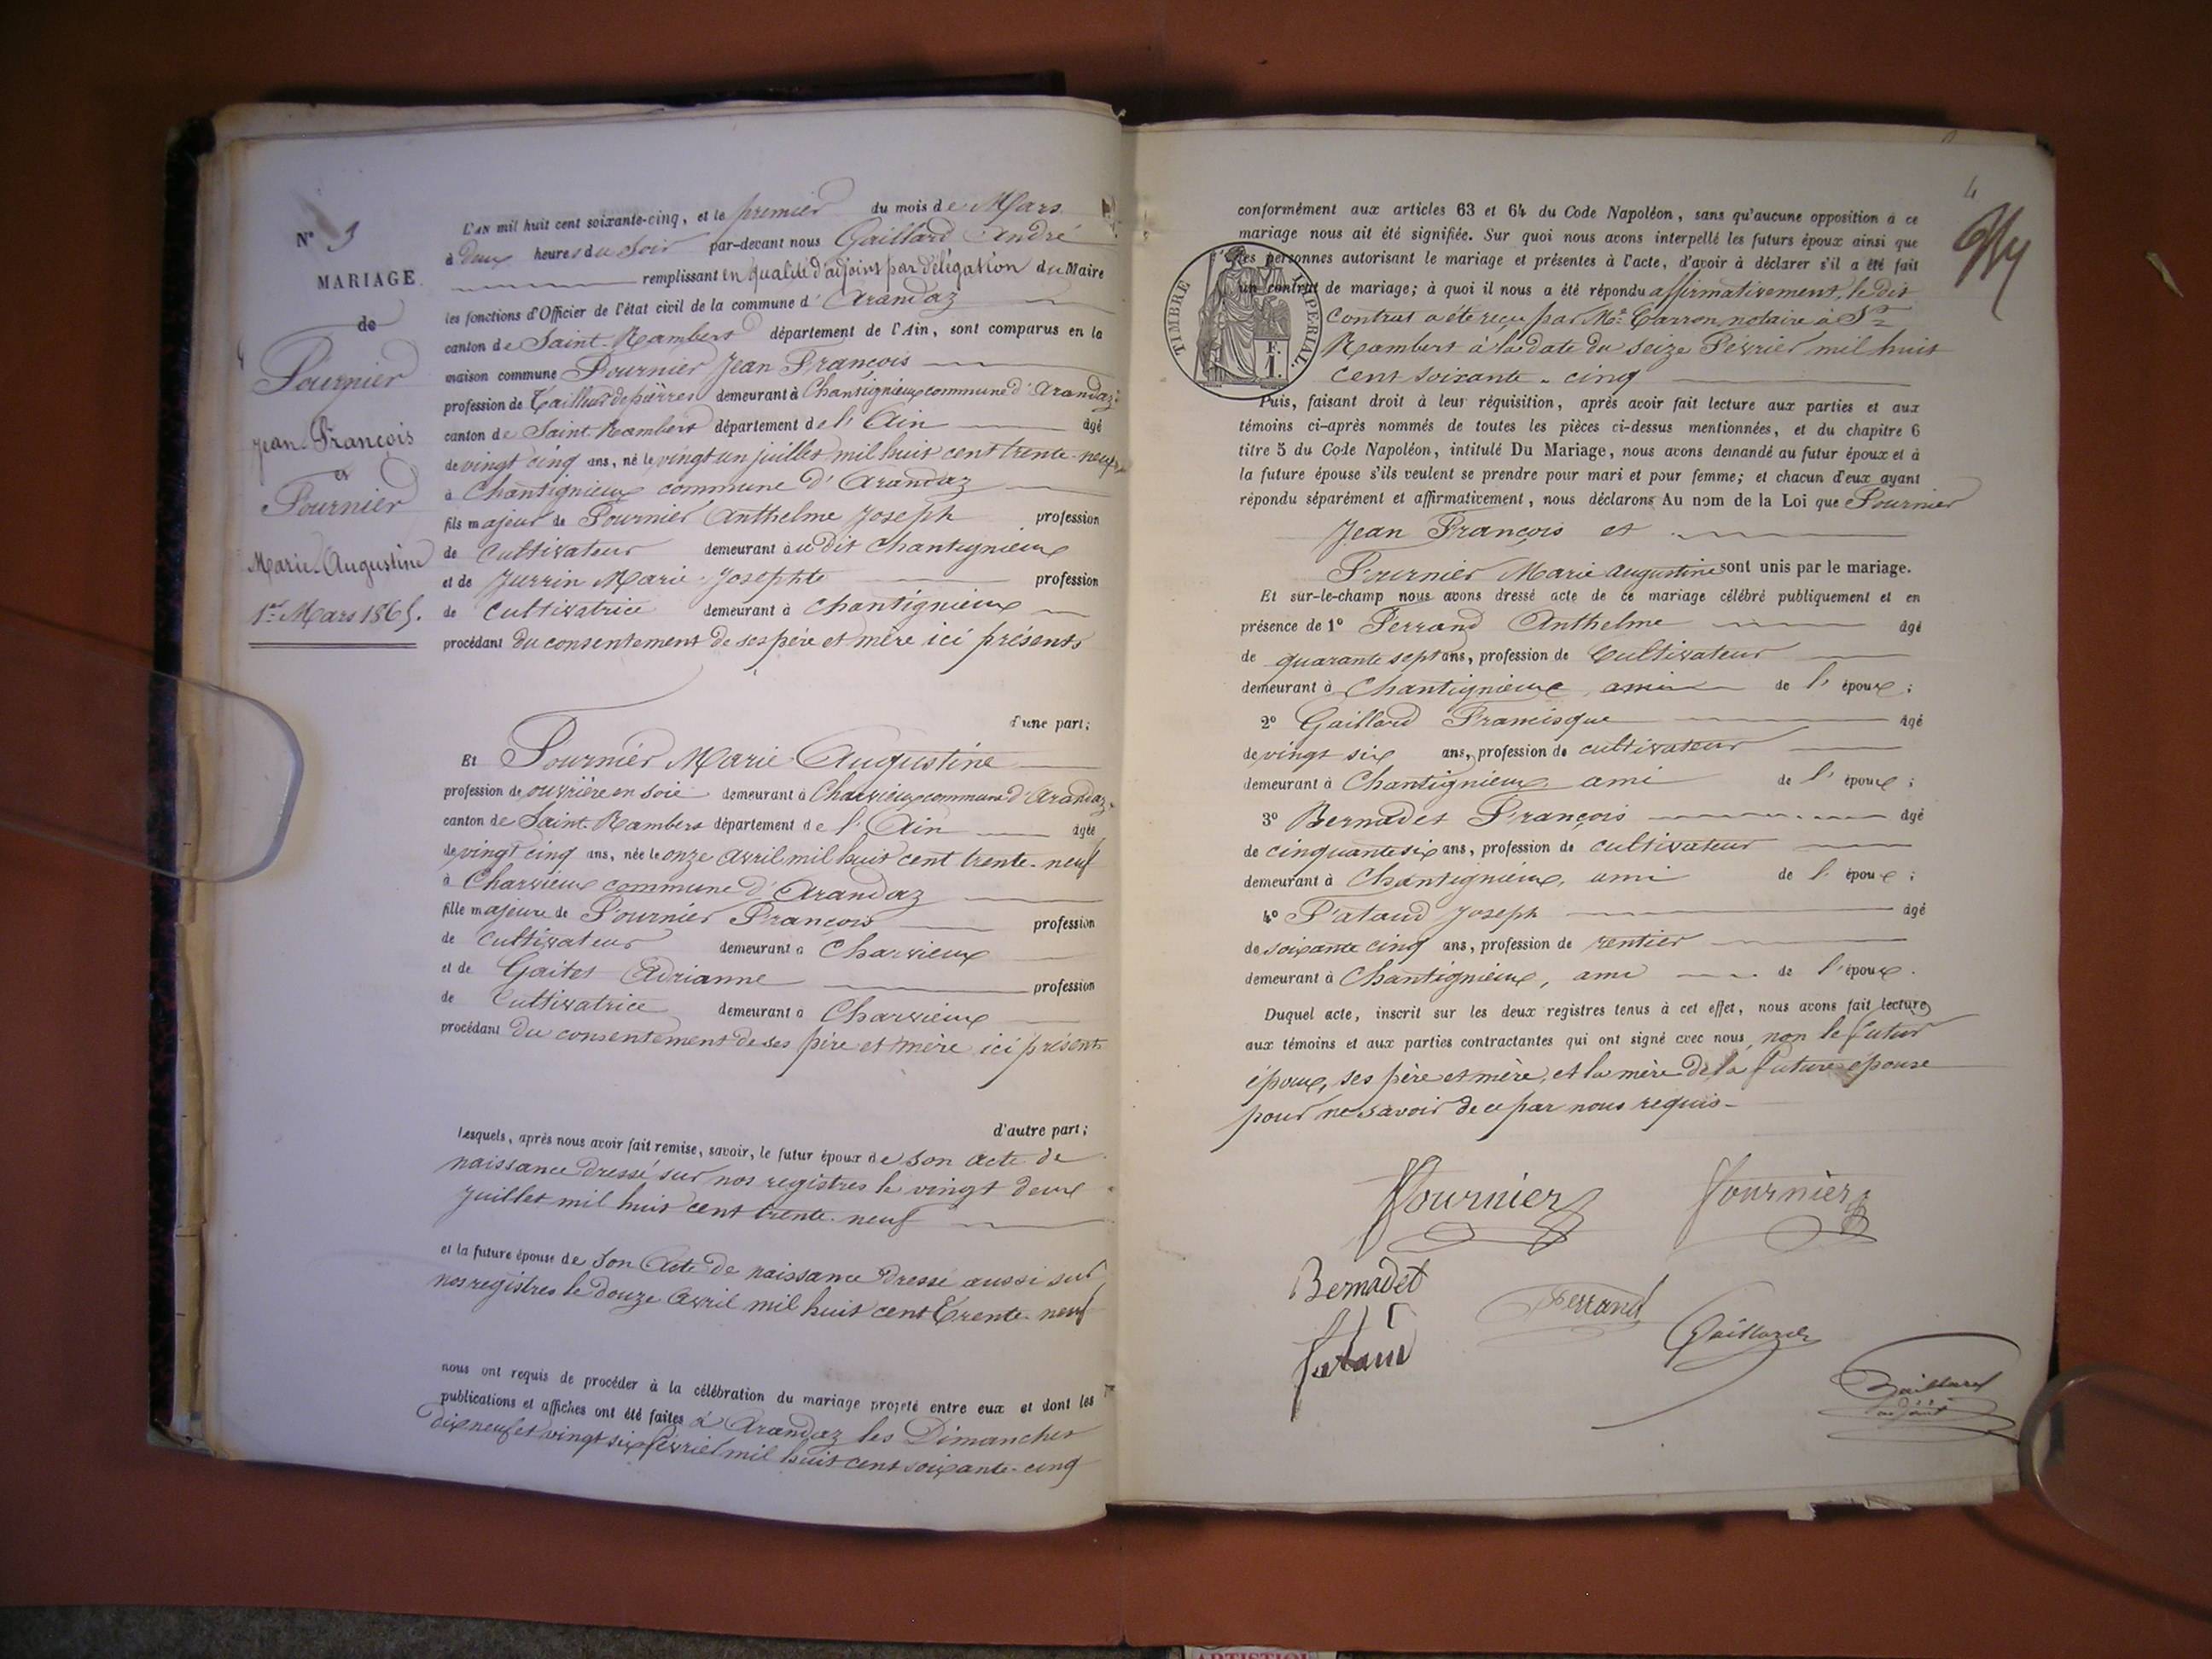 N° 3
MARIAGE
de
Fournier
Jean-François
et
Fournier
Marie-Augustine
1er Mars 1865.
L'AN mil huit cent soixante-cinq, et le premier du mois de Mars
à deux heures du Soir par-devant nous Gaillard André
remplissant en qualité d'adjoint par délégation du Maire
les fonctions d'Officier de l'état civil de la commune d'Arandaz
canton de Saint-Rambert département de l'Ain, sont comparus en la
maison commune Fournier Jean François
profession de Tailleur de pierres demeurant à Chantignieux commune d'Arandaz
canton de Saint-Rambert département de l'Ain âgé
de vingt cinq ans, né le vingt un juillet mil huit cent trente-neuf
à Chantignieux commune d'Arandaz
fils majeur de Fournier Anthelme Joseph profession
de Cultivateur demeurant à udit Chantignieux
et de Jurrin Marie-Josephte profession
de Cultivatrice demeurant à Chantignieux
procédant du consentement de ses père et mère ici présents
d'une part;
Et Fournier Marie-Augustine
profession de ouvrière en soie demeurant à Charvieux commune d'Arandaz
canton de Saint-Rambert département de l'Ain âgée
de vingt cinq ans, née le onze Avril mil huit cent trente-neuf
à Charvieux commune d'Arandaz
fille majeure de Fournier François profession
de Cultivateur demeurant à Charvieux
et de Gaites Adrianne profession
de Cultivatrice demeurant à Charvieux
procédant du consentement de ses père et mère ici présents
d'autre part;
Lesquels, après nous avoir fait remise, savoir, le futur époux de son Acte de
naissance dressé sur nos registres le vingt deux
Juillet mil huit cent trente-neuf
et la future épouse de son Acte de naissance dressé aussi sur
nos registres le douze Avril mil huit cent trente-neuf
nous ont requis de procéder à la célébration du mariage projeté entre eux et dont les
publications et affiches ont été faites à Arandaz les Dimanches
dix neuf et vingt six février mil huit cent soixante-cinq
4
conformément aux articles 63 et 64 du Code Napoléon, sans qu'aucune opposition à ce
mariage nous ait été signifiée. Sur quoi nous avons interpellé les futurs époux ainsi que
les personnes autorisant le mariage et présentes à l'acte, d'avoir à déclarer s'il a été fait
un contrat de mariage; à quoi il nous a été répondu affirmativement, le dit
Contrat a été reçu par Me Carron, notaire à St
Rambert à la date du seize Février mil huit
cent soixante-cinq
TIMBRE IMPÉRIAL.
F.
1.
Puis, faisant droit à leur réquisition, après avoir fait lecture aux parties et aux
témoins ci-après nommés de toutes les pièces ci-dessus mentionnées, et du chapitre 6
titre 5 du Code Napoléon, intitulé Du Mariage, nous avons demandé au futur époux et à
la future épouse s'ils veulent se prendre pour mari et pour femme; et chacun d'eux ayant
répondu séparément et affirmativement, nous déclarons Au nom de la Loi que Fournier
Jean François et
Fournier Marie Augustine sont unis par le mariage.
Et sur-le-champ nous avons dressé acte de ce mariage célébré publiquement et en
présence de 1° Ferrand Anthelme âgé
de quarante sept ans, profession de Cultivateur
demeurant à Chantignieux, ami de l'époux;
2° Gaillard Francisque âgé
de vingt six ans, profession de cultivateur
demeurant à Chantignieux, ami de l'époux;
3° Bernadet François âgé
de cinquante six ans, profession de cultivateur
demeurant à Chantignieux, ami de l'époux;
4° Pataud Joseph âgé
de soixante cinq ans, profession de rentier
demeurant à Chantignieux, ami de l'époux.
Duquel acte, inscrit sur les deux registres tenus à cet effet, nous avons fait lecture
aux témoins et aux parties contractantes qui ont signé avec nous, non le futur
époux, ses père et mère, et la mère de la future épouse
pour ne savoir de ce par nous requis-
Fournier Fournier
Bernadet
Ferrand
Gaillard
Pataud
Gaillard
adjoint